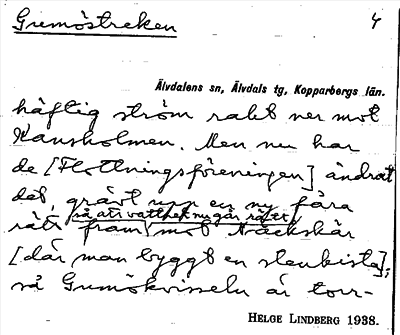 Gremöstreken 4
Älvdalens sn, Älvdals tg, Kopparbergs län.
häftig ström rakt ner mot
Hansholmen. Men nu har
de [Flottningsföreningen] ändrat
det, grävt upp en ny fåra
så att vattnet nu går rätt
rätt fram mot
[där man byggt en stenkista],
så Gremökvisseln är torr-
HELGE LINDBERG 1938.